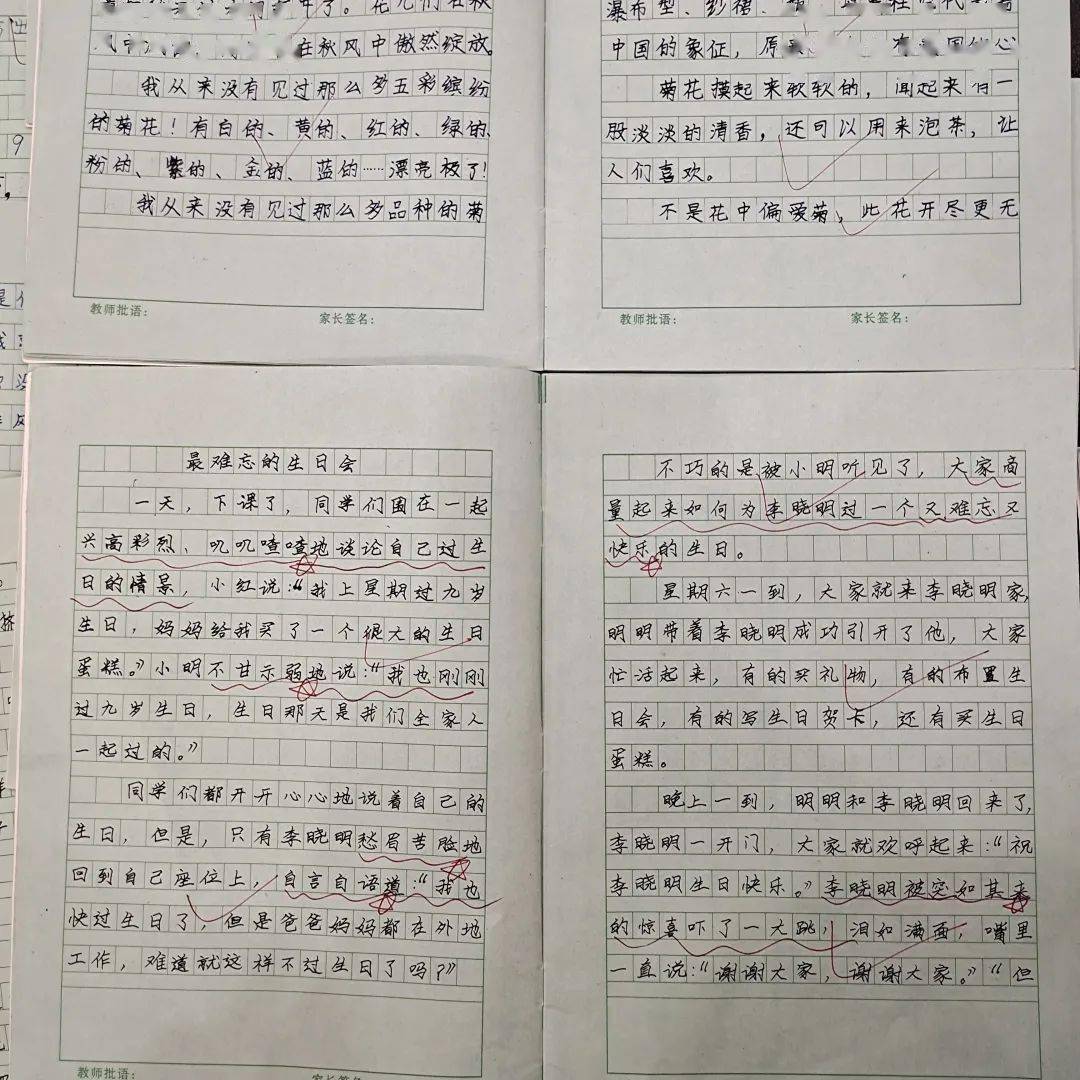 在秋风中傲然绽放。
我从来没有见过那么多五彩缤纷
的菊花！有白的、黄的、红的、绿的、
粉的、紫的、金的、蓝的……漂亮极了！
我从来没有见过那么多品种的菊
教师批语：
家长签名：
瀑布型、
中国的象征，原
菊花摸起来软软的，闻起来有一
股淡淡的清香，还可以用来泡茶，让
人们喜欢。
不是花中偏爱菊，此花开尽更无
教师批语：
家长签名：
最难忘的生日会
一天，下课了，同学们围在一起
兴高彩烈、叽叽喳喳地谈论自己过生
日的情景，小红说：“我上星期过九岁
生日，妈妈给我买了一个很大的生日
蛋糕。”小明不甘示弱地说：“我也刚刚
过九岁生日，生日那天是我们全家人
一起过的。”
同学们都开开心心地说着自己的
生日，但是，只有李晓明愁眉苦脸地
回到自己座位上，自言自语道：“我也
快过生日了，但是爸爸妈妈都在外地
工作，难道就这样不过生日了吗？”
教师批语：
家长签名：
不巧的是被小明听见了，大家商
量起来如何为李晓明过一个又难忘又
快乐的生日。
星期六一到，大家就来李晓明家，
明明带着李晓明成功引开了他，大家
忙活起来，有的买礼物，有的布置生
日会，有的写生日贺卡，还有买生日
蛋糕。
晚上一到，明明和李晓明回来了，
李晓明一开门，大家就欢呼起来：“祝
李晓明生日快乐。”李晓明被突如其来
的惊喜吓了一大跳，泪如满面，嘴里
一直说：“谢谢大家，谢谢大家。”“但